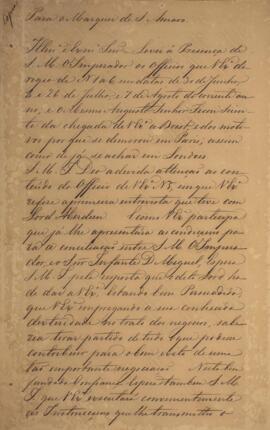 Para o Marquez de S. Amaro
Illmo e Exmo Senr Levei á Presença de
S. M. O Imperador os Officios que V. Exa di-
rigio de Nº 1 a 6 em datas de 30 de Junho,
e 26 de Julho, e 7 de Agosto do corrente an-
no, e o Mesmo Augusto Senhor Ficou scien-
te da chegada de V. Exa a Brest, e dos moti-
vos por que se demorou em Paris, assim
como de já se achar em Londres
S. M. I. Deo a devida attenção ao con-
teudo do Officio de V. Exa Nº 5, em que V. Exa
refere a primeira entrevista que teve com
Lord Aberdeen e como V. Exa participa
que já lhe apresentára as condiçoens pa-
ra a conciliação entre S. M. O Impera-
dor, e o Snr Infante D. Miguel, espera
S. M. I. pela resposta que o dito Lord ha
de dar a V. Exa, estando bem Persuadido,
que V. Exa empregando a sua conhecida
dexteridade no trato dos negocios, sabe-
ria tirar partido de tudo o que podesse
contribuir para o bom exito de uma
tão importante negociação Nesta bem
fundada Confiança espera tambem S. M.
I. que V. Exa executará convenientemente
as Instrucçoens que lhe transmitti